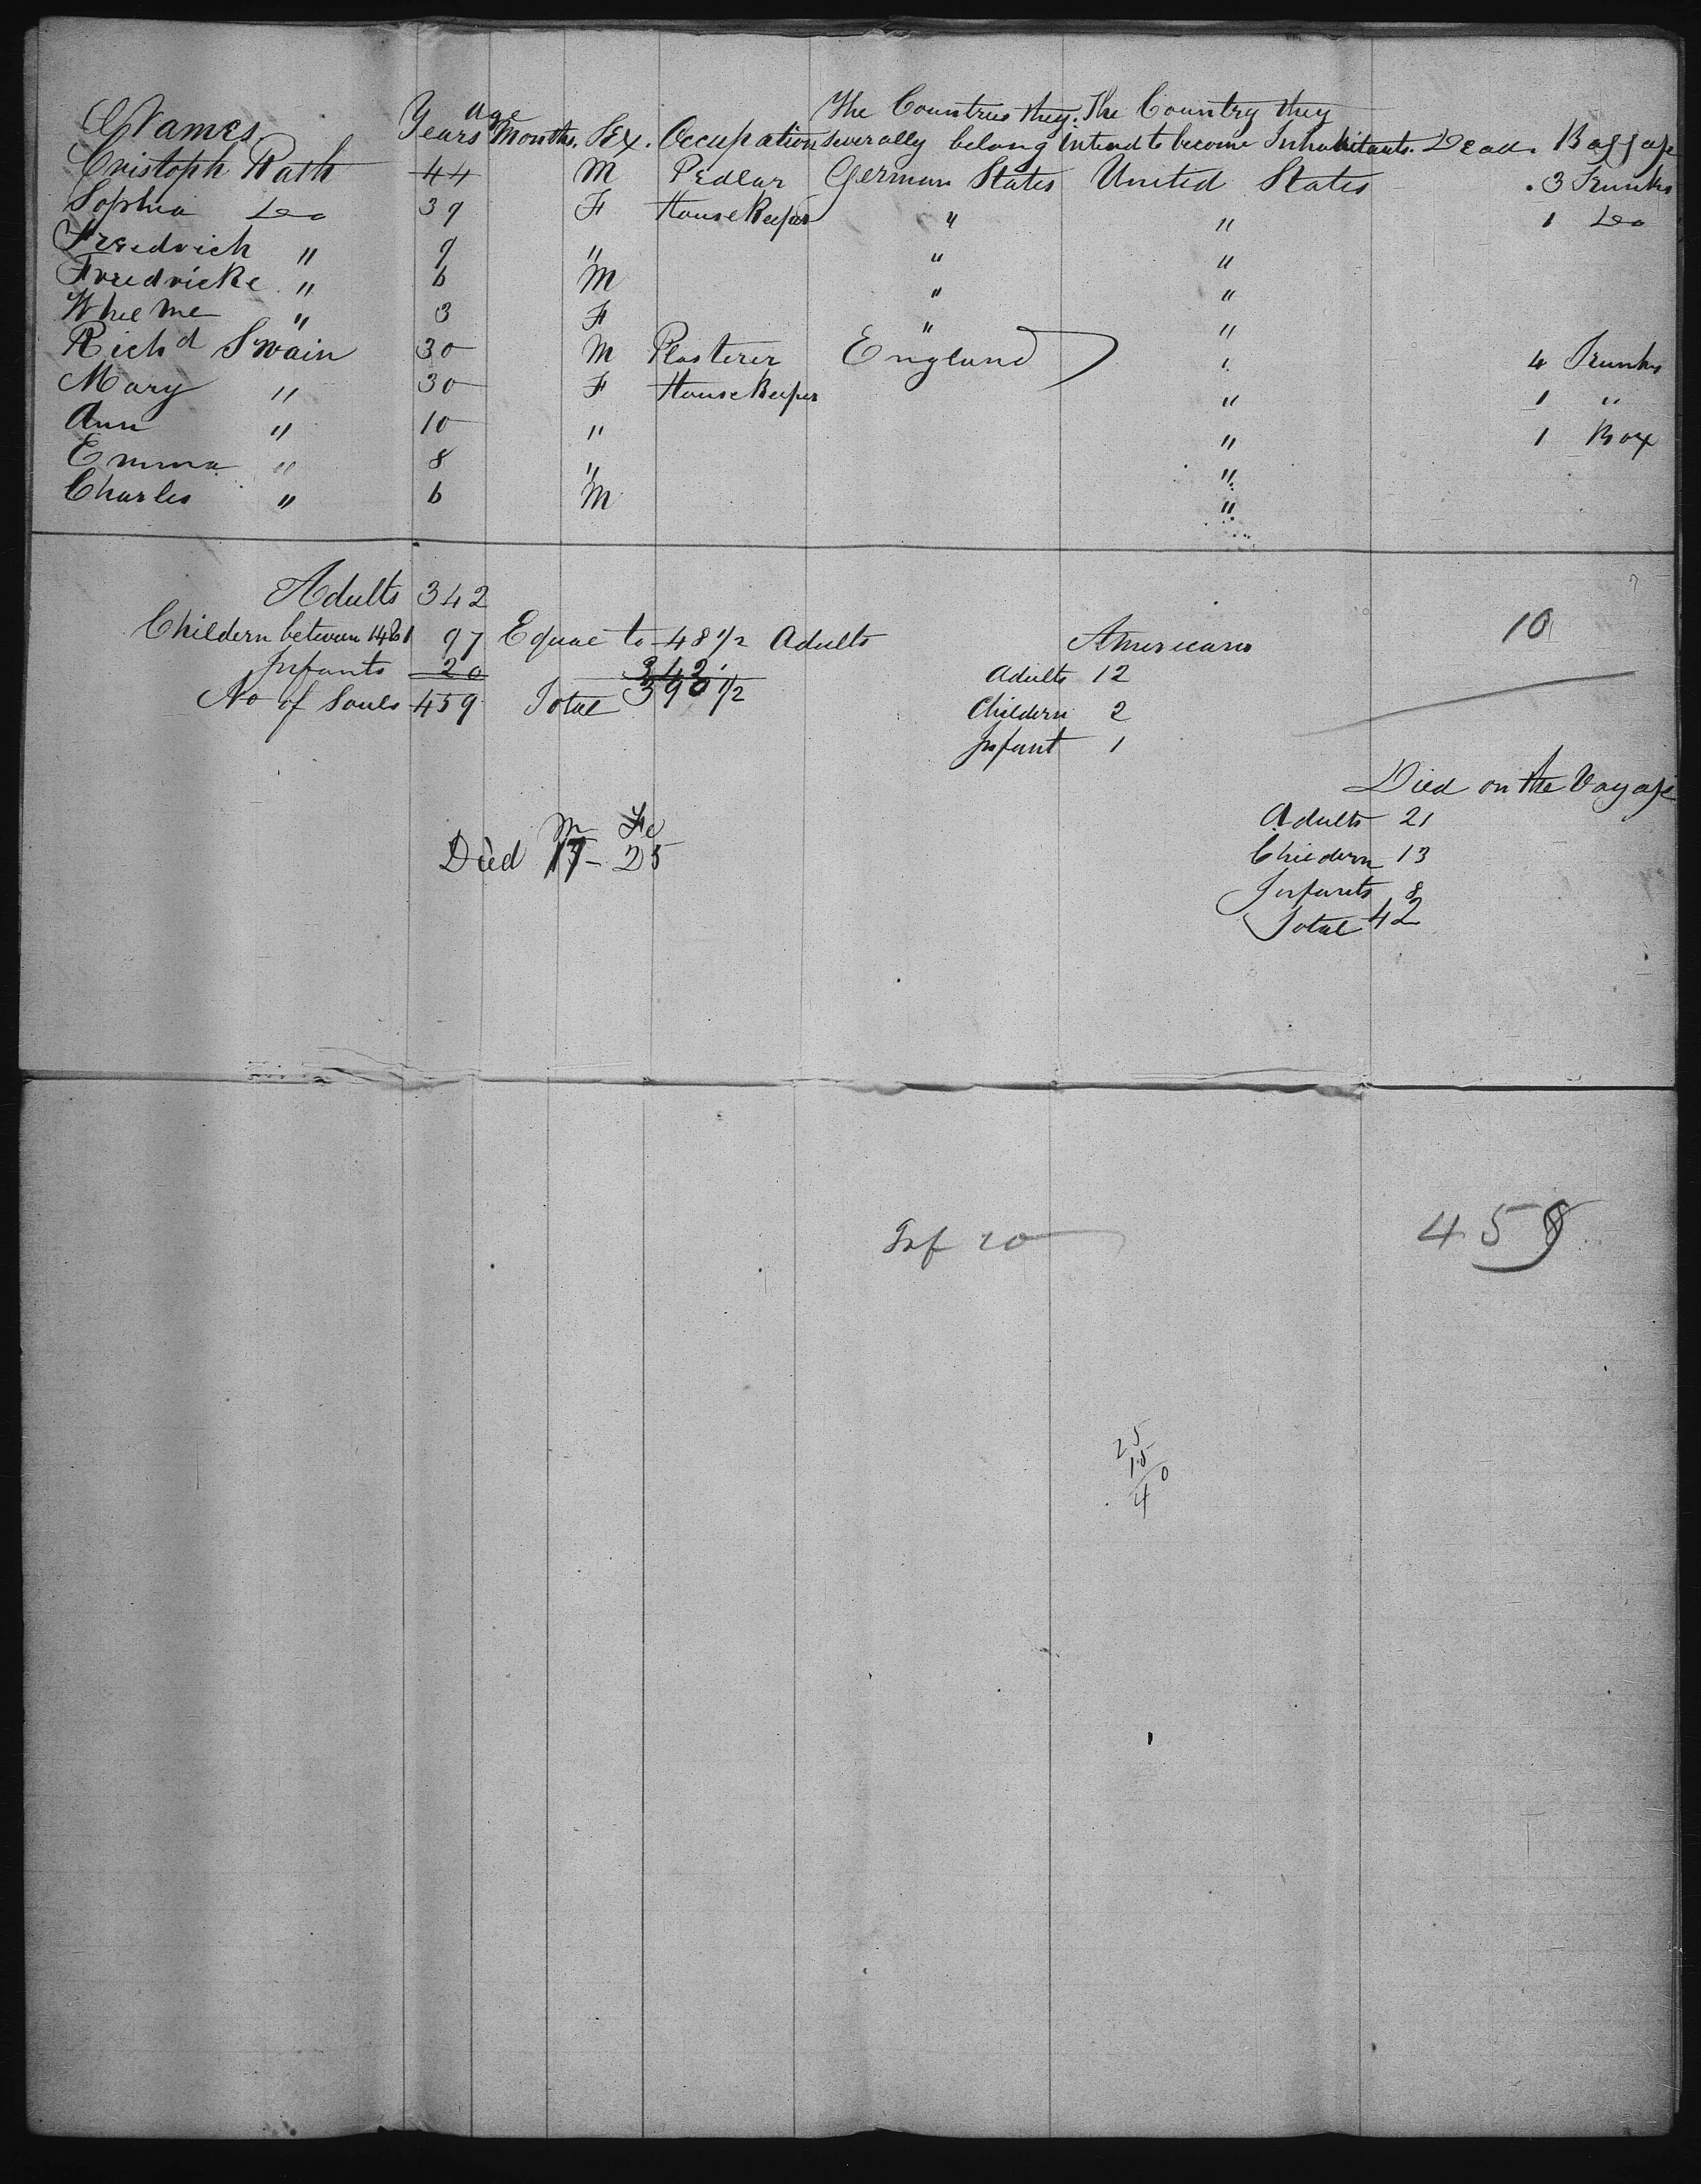 Age The Countries they The Country they
Names Years Months. Sex. Occupation severally belong intend to become Inhabitants. Dead. Baggage
Cristoph Rath 44 M Pedlar German States United States 3 Trunks
Sophia Do 39 F HouseKeeper " " 1 Do
Freedrich " 9 " " "
Freedricke " 6 M " "
Whelme " 3 F " "
Richd Swain 30 M Plasterer England " 4 Trunks
Mary " 30 F HouseKeeper " 1 "
Ann " 10 " " 1 Box
Emma " 8 " "
Charles " 6 M "
Adults 342
Childern between 14 & 1 97 Equal to 48 1/2 Adults
Infants 20 342
No of Souls 459 Total 390 1/2
Americans
Adults 12
Childern 2
Infant 1
10
Died on the Voyage
Adults 21
Childern 13
Infants 8
Total 42
M Fe
Died 17 - 25
Inf 20
459
25
15
40